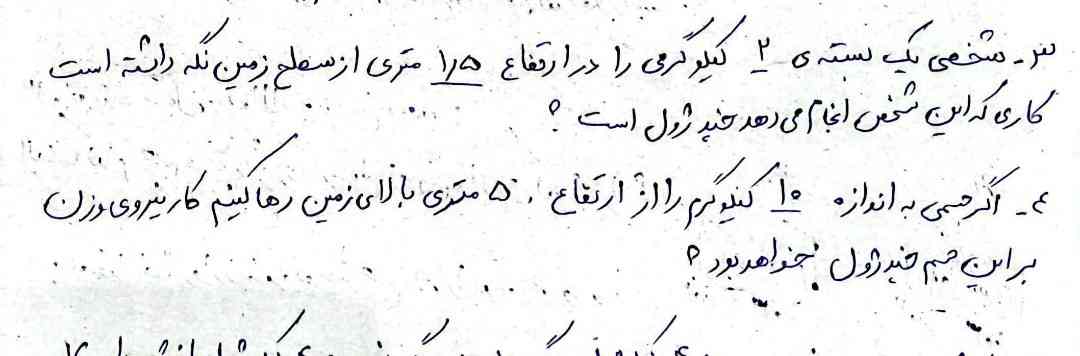 ۳- شخصی یک بسته ی ۲ کیلوگرمی را در ارتفاع ۱٫۵ متری از سطح زمین نگه داشته است
کاری که این شخص انجام می دهد چند ژول است ؟
۴- اگر جسمی به اندازه ۱۰ کیلوگرم را از ارتفاع ۵۰ متری بالای زمین رها کنیم کار نیروی وزن
بر این جسم چند ژول خواهد بود ؟